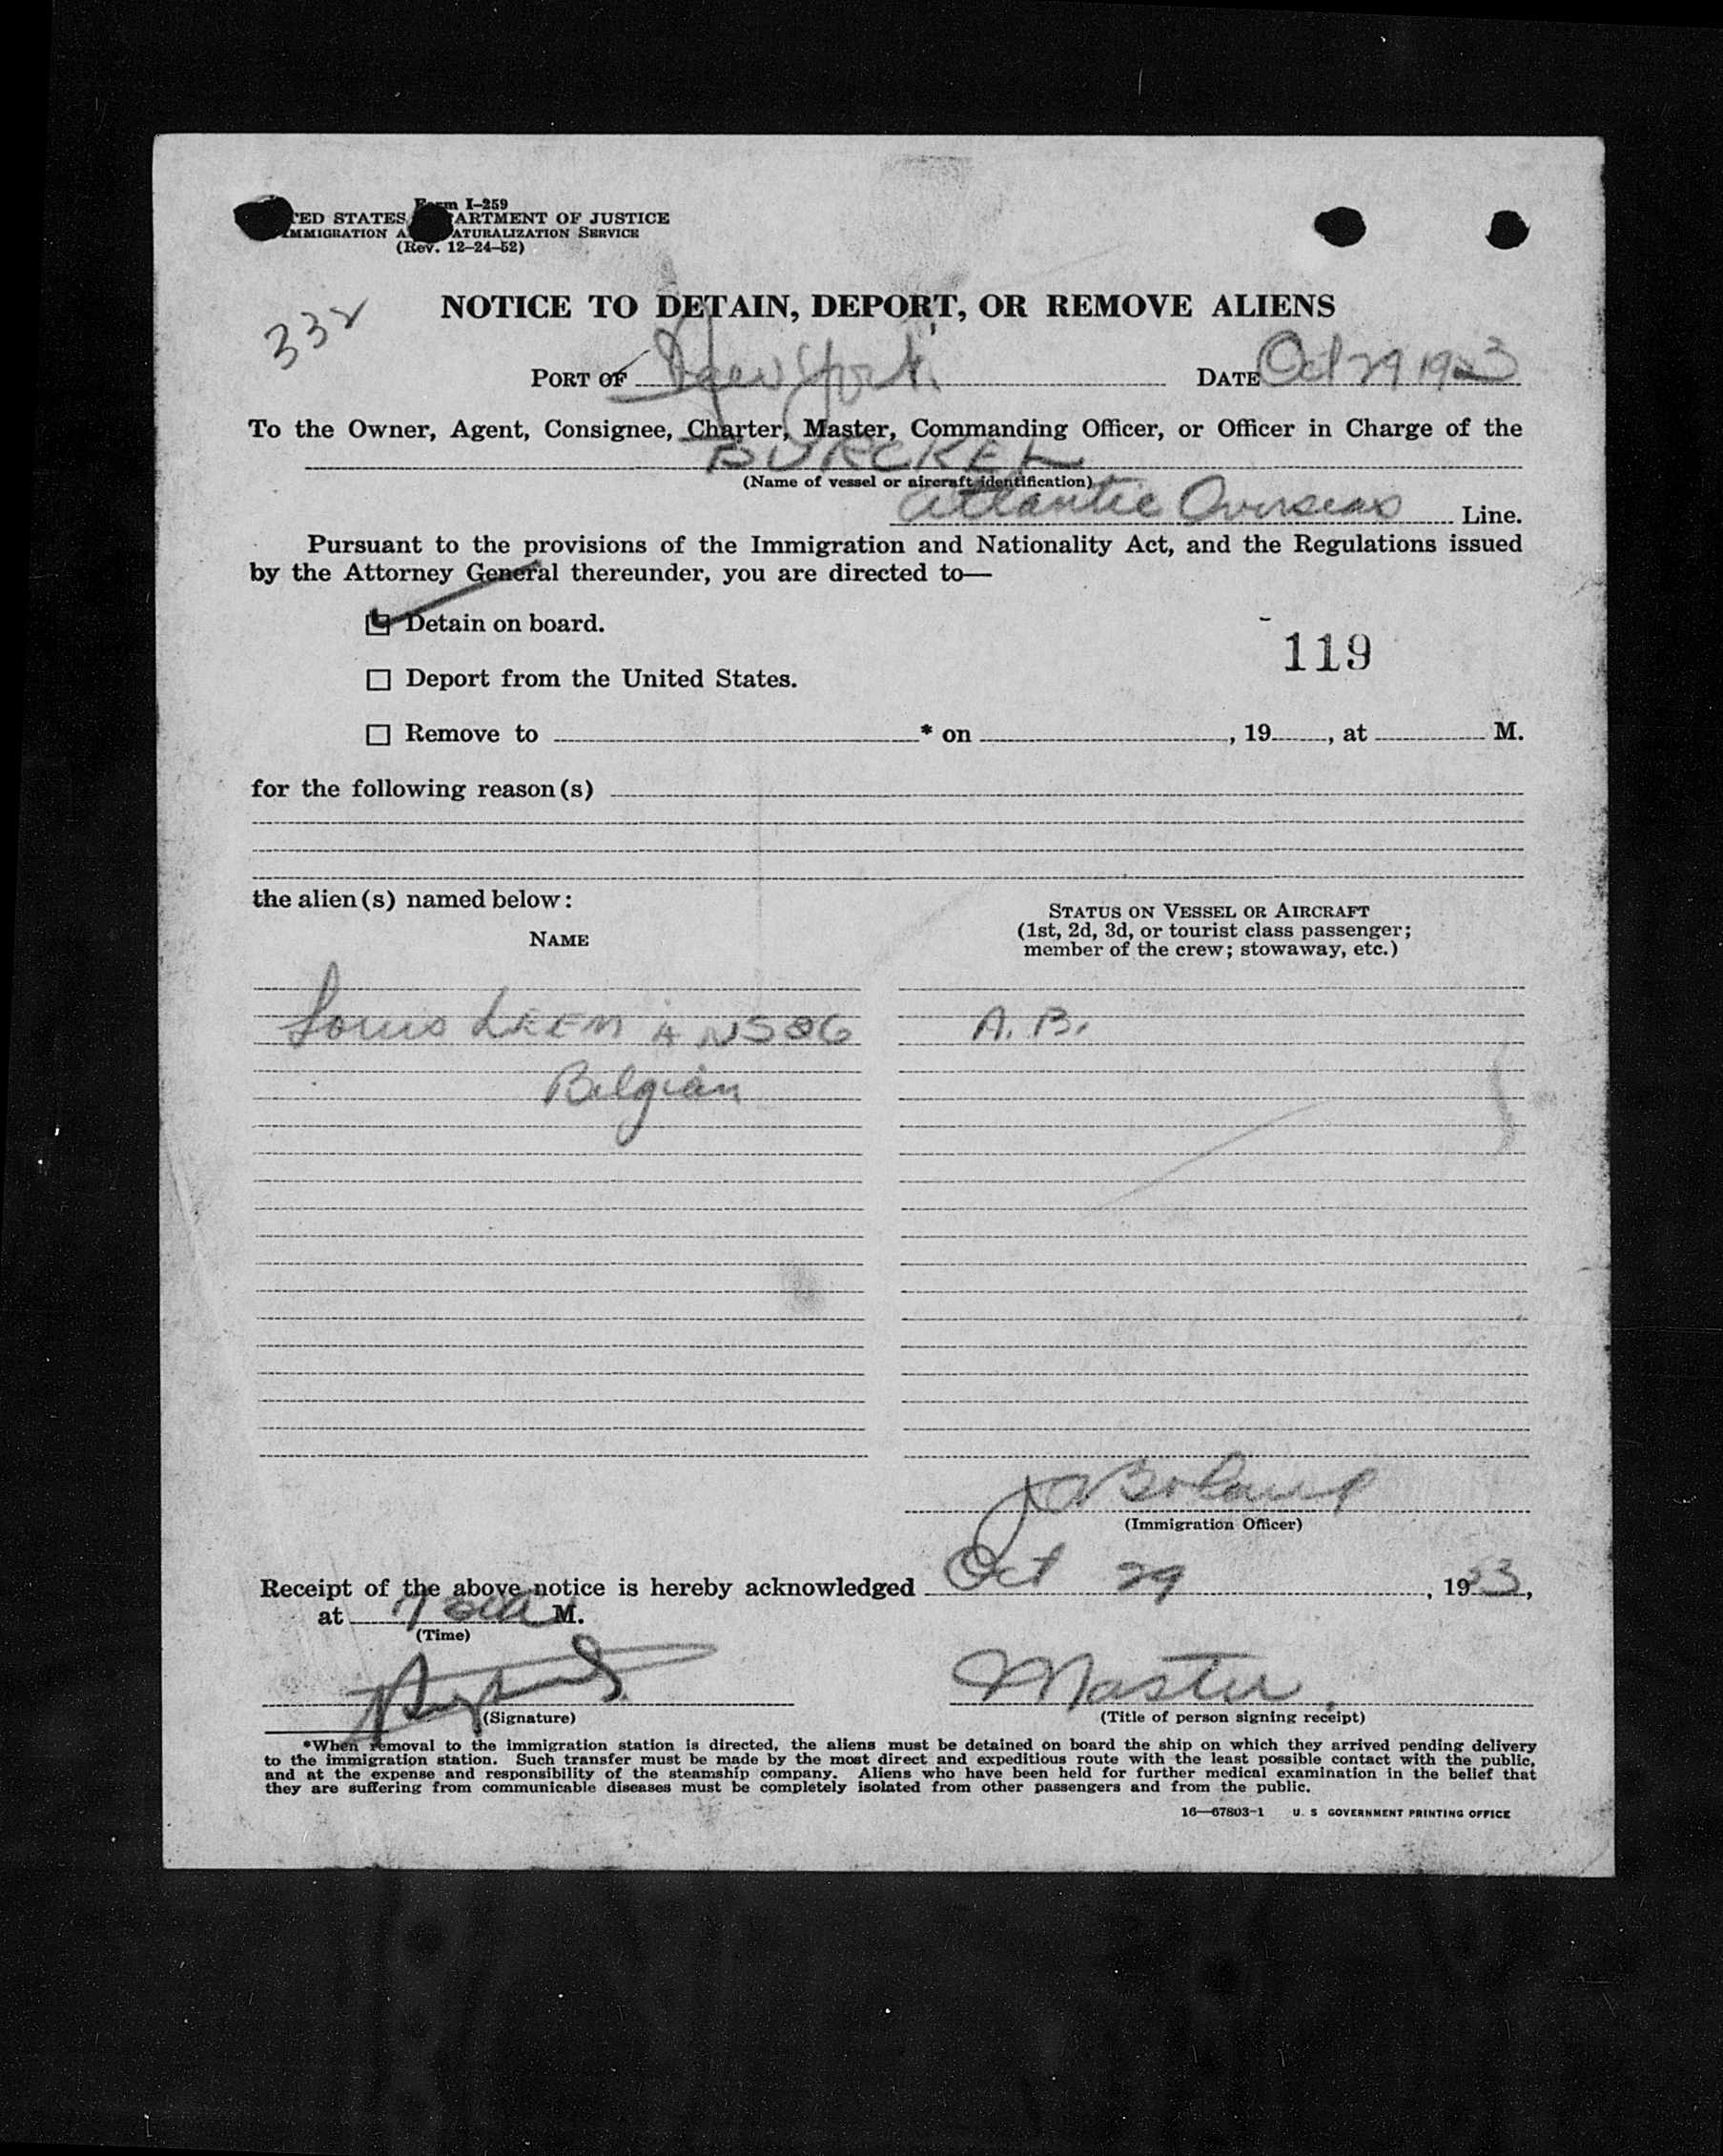 Form I-259
TED STATES ARTMENT OF JUSTICE
MMIGRATION A ATURALIZATION SERVICE
(Rev. 12-24-52)
332
NOTICE TO DETAIN, DEPORT, OR REMOVE ALIENS
PORT OF New York DATE Oct 29 1953
To the Owner, Agent, Consignee, Charter, Master, Commanding Officer, or Officer in Charge of the
BURCKEL
(Name of vessel or aircraft identification)
Atlantic Overseas Line.
Pursuant to the provisions of the Immigration and Nationality Act, and the Regulations issued
by the Attorney General thereunder, you are directed to—
Detain on board.
119
Deport from the United States.
Remove to * on , 19 , at M.
for the following reason(s)
the alien(s) named below:
NAME
STATUS ON VESSEL OR AIRCRAFT
(1st, 2d, 3d, or tourist class passenger;
member of the crew; stowaway, etc.)
Louis A. B.
Belgian
(Immigration Officer)
Receipt of the above notice is hereby acknowledged Oct 29, 1953,
at M.
(Time)
Master.
(Signature) (Title of person signing receipt)
*When removal to the immigration station is directed, the aliens must be detained on board the ship on which they arrived pending delivery
to the immigration station. Such transfer must be made by the most direct and expeditious route with the least possible contact with the public,
and at the expense and responsibility of the steamship company. Aliens who have been held for further medical examination in the belief that
they are suffering from communicable diseases must be completely isolated from other passengers and from the public.
16—67803-1 U. S GOVERNMENT PRINTING OFFICE